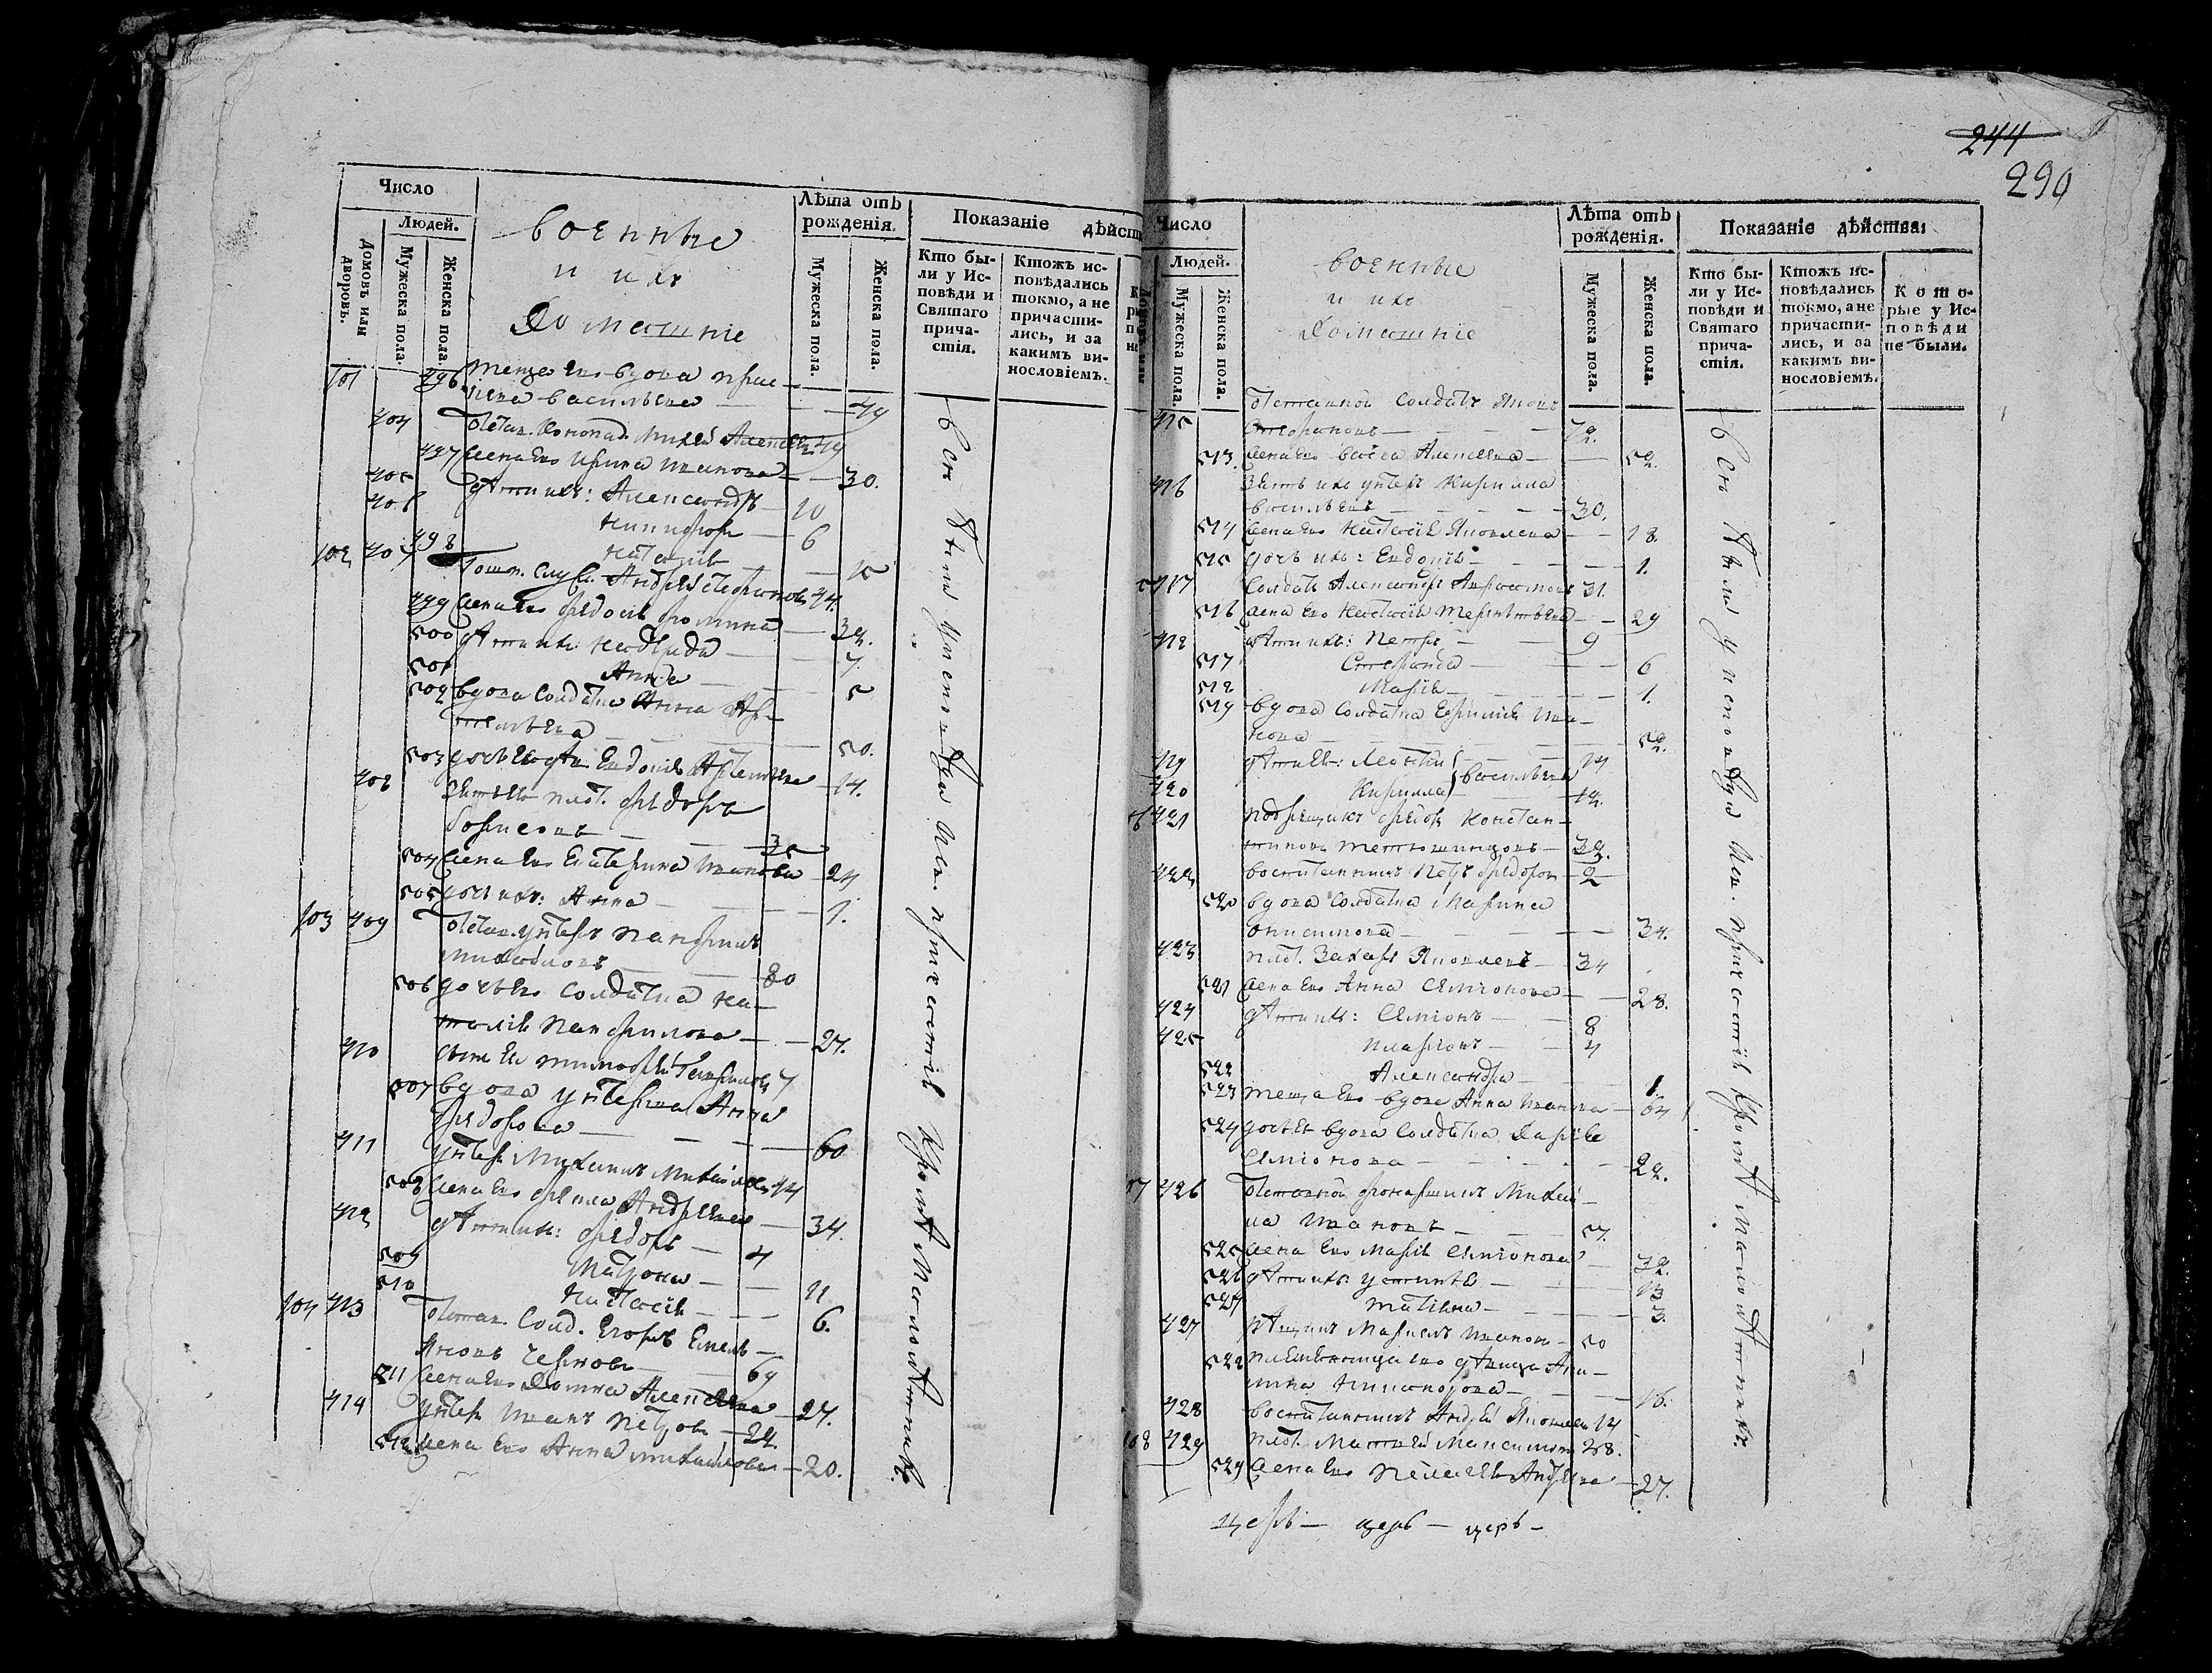 Число
Людей.
Домовъ или дворовъ.
Мужеска пола.
Женска пола.
Военные
и ихъ
Домашніе
Лѣта отъ рожденія.
Мужеска пола.
Женска пола.
Показаніе дѣйст
Кто бы-
ли у Ис-
повѣди и
Святаго
прича-
стія.
Ктожъ ис-
повѣдались
токмо, а не
причасти-
лись, и за
какимъ ви-
нословіемъ.
101 496 теща Ево вдова
Васильева 49
404 Михей Алексеев 49
497 жена Ево Ирина Иванова 30.
405 дѣти ихъ: Александръ 10
406 Никифоръ 6
498 Настасія
102 407 Андрей Стефановъ 44.
499 жена Ево Федосья Фомина 32.
500 дѣти ихъ: Надежда 7.
501 Анна 5
502 вдова Солдатка Анна Ар-
темьева 50.
503 Евдокія Артемьева 14.
408 Федоръ
Борисовъ 35
504 жена Ево Екатерина Иванова 24
505 дочь ихъ: Анна 1.
103 409 Отстав. унтеръ Панфилъ
Михайловъ 80
506 дочь Ево Солдатка На-
талія Панфилова 27.
410 сынъ Ея Тимофей 7
507 вдова унтерша Анна
Федорова 60
411 унтеръ Михаилъ Михайловъ 44
508 жена Ево Фекла Андреева 34.
412 дѣти ихъ: Федоръ 4
509 Матрона 11
510 Настасія 6.
104 413 Отстав. Солд. Егоръ Емель-
яновъ Черновъ 69
511 жена Ево Домна Алексеева 27.
414 унтеръ Иванъ Петровъ 22.
512 жена Ево Анна Михайлова 20.
Всѣ Сіи у исповѣди и Св. причастія кромѣ малолѣтнихъ.
244
290
Число
Людей.
Мужеска пола.
Женска пола.
Военные
и ихъ
Домашніе
Лѣта отъ рожденія.
Мужеска пола.
Женска пола.
Показаніе дѣйства:
Кто бы-
ли у Ис-
повѣди и
Святаго
прича-
стія.
Ктожъ ис-
повѣдались
токмо, а не
причасти-
лись, и за
какимъ ви-
нословіемъ.
Кото-
рые у Ис-
повѣди
не были.
415 Отставной Солдатъ Яковъ
Стефановъ 72.
513. жена Ево Алексеева 52.
416 Зять ихъ унтеръ Кирилла
Васильевъ 30.
514 жена Ево Настасія Яковлева 18.
515 дочь ихъ: Евдокія 1.
417 Солдатъ Александръ 31.
516 жена Ево Настасія Терентьева 29
418 дѣти ихъ: Петръ 9
517 Стефанида 6
518 Марія 1.
519 вдова Солдатка Ефимія Ива-
нова 52.
419 дѣти Ея: Леонтій 14
420 Кирилла Васильевы 12.
421 подрящикъ Федоръ Констан-
тиновъ 32.
422 воспитанникъ Петръ Федоровъ 2
520 вдова Солдатка Марина
Онисимова 34.
423 плот. Захаръ Яковлевъ 34
521 жена Ево Анна Семіонова 28.
424 дѣти ихъ: Семіонъ 8
425 Иларіонъ 4
522 Александра 1.
523 теща Ево вдова Анна Иванова 64
524 дочь Ея вдова Солдатка Дарія
Семіонова 22.
426 Отставной Михай-
ла Ивановъ 57.
525 жена Ево Марія Семіонова 32.
526 дѣти ихъ: Устинія 13
527 Татіана 3.
427 Иванов 50
528 племянница ево дѣвица Аку-
лина Никанорова 16.
428 воспитанникъ Андрей Яковлев 14
108 429 плот. Матвей Максимовъ 28.
529 жена Ево Пелагея Андреева 27.
Всѣ Сіи у исповѣди и Св. причастія кромѣ малолѣтнихъ.
церь — церь — церь —